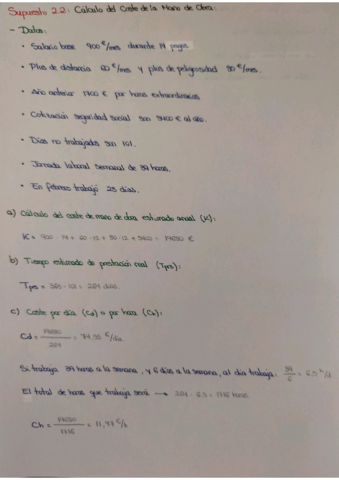 Supuesto 2.2: Cálculo del Coste de la Mano de Obra:
- Datos:
• Salario base 900 €/mes durante 14 pagas.
• Plus de distancia 60 €/mes y plus de peligrosidad 50 €/mes.
• Año anterior 1700 € por horas extraordinarias.
• Cotización seguridad social son 3400 € al año.
• Días no trabajados son 101.
• Jornada laboral semanal de 39 horas.
• En febrero trabajó 23 días.
a) Cálculo del coste de mano de obra estimado anual (K):
K = 900 · 14 + 60 · 12 + 50 · 12 +
b) Tiempo estimado de prestación real (Tprs):
Tprs =
c) Coste por día (Cd) o por hora (Ch):
Cd = €/día
Si trabaja 39 horas a la semana, y 6 días a la semana, al día trabaja: 39/6 = 6.5 h/d
El total de horas que trabaja será →
Ch = €/h